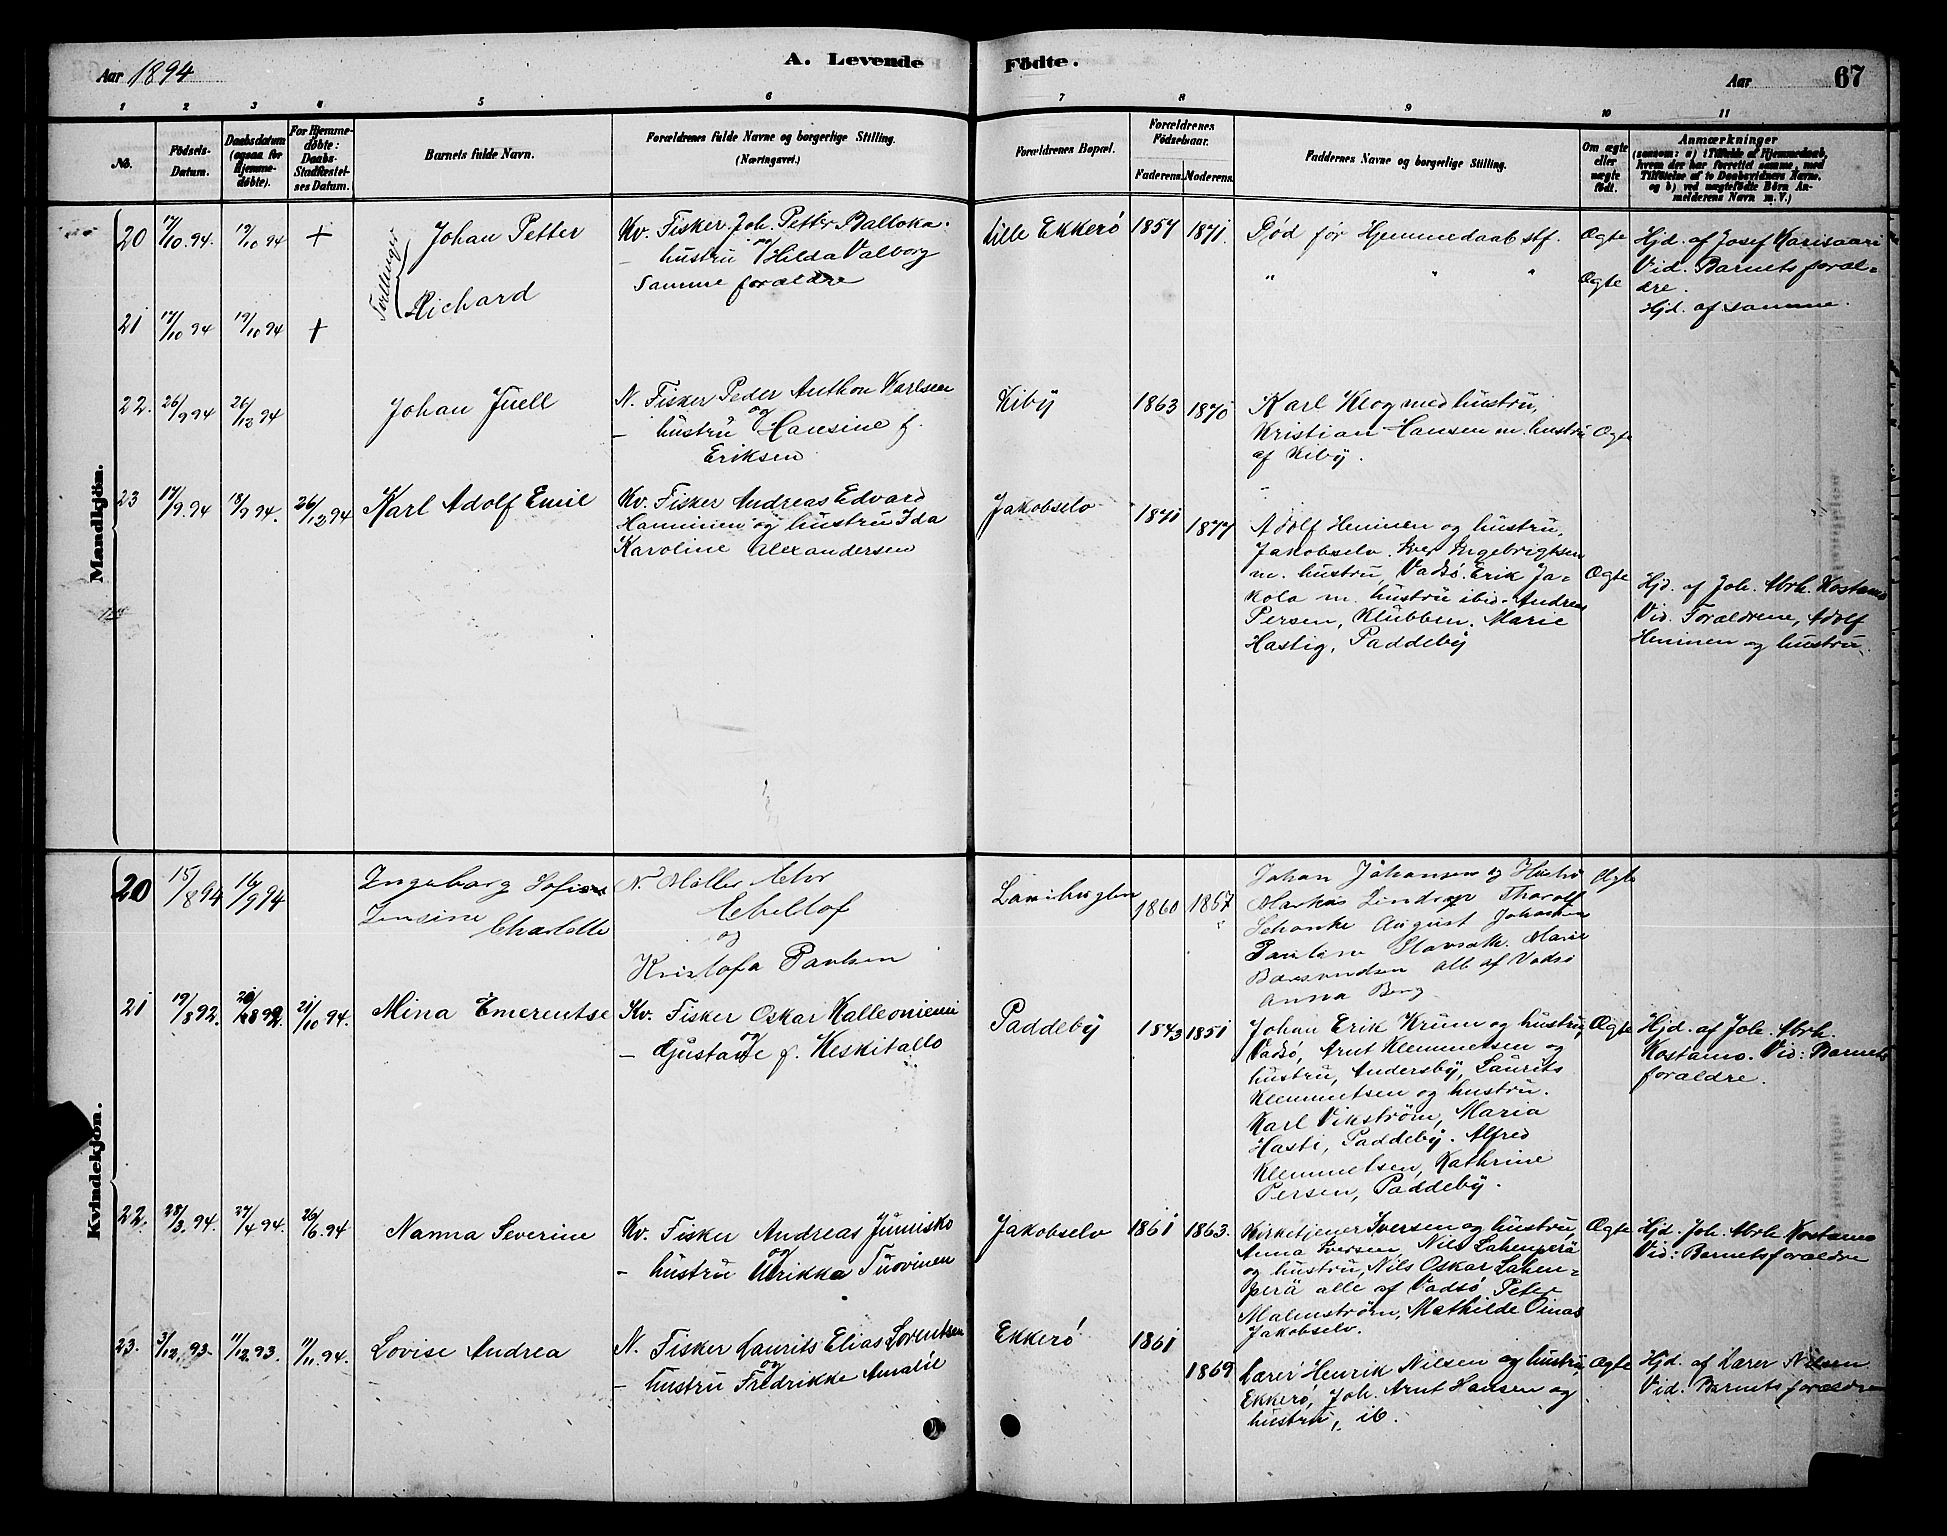 Aar 1894
A. Levende
Födte.
Aar
67
1 2 3 4 5 6 7 8 9 10 11
No.
Födsels-
Datum.
Daabsdatum
(ogsaa for
Hjemme-
döbte).
For Hjemme-
döbte:
Daabs-
Stadfæstel-
ses Datum.
Barnets fulde Navn.
Forældrenes fulde Navne og borgerlige Stilling.
(Næringsvei.)
Forældrenes Bopæl.
Forældrenes
Födselsaar.
Faderens. Moderens.
Faddernes Navne og borgerlige Stilling.
Om ægte
eller
uægte
födt.
Anmærkninger
(saasom: a) i Tilfælde af Hjemmedaab,
hvem der har forrettet samme, med
Tilföielse af to Daabsvidners Navne,
og b) ved uægtefödte Börn An-
melderens Navn m. V.)
Mandkjön.
20 17/10.94. 19/10 94 +
Tvillinger
Johan Petter
Kv. Fisker Joh. Petter Balloka.
- hustru og Hilda Valborg
Lille Ekkerö 1857 1871.
Död før Hjemmedaab stf.
Ægte
Hjd. af Josef Karisaari
Vid. Barnets foræl-
dre.
21 17/10 94 19/10 94 +
Richard
Samme forældre
" " "
Ægte
Hjd. af samme.
22. 26/9 94 26/12 94
Johan Juell
N. Fisker Peder Anthon Karlsen
og
- hustru Hansine f.
Eriksen
Kiby 1863 1870
Karl Klog med hustru,
Kristian Hansen m. hustru
af Kiby.
Ægte
23 17/9.94 18/9 94. 26/12 94
Karl Adolf Emil
Kv. Fisker Andreas Edvard
Hanninen og hustru Ida
Karoline Alexandersen
Jakobselv 1871 1877
Adolf Heninen og hustru,
Jakobselv. Iver Ingebrigtsen
m. hustru, Vadsö. Erik Ja-
kola m. hustru ibid. Andreas
Persen, Klubben. Marie
Hastig, Paddeby
Ægte
Hjd. af Joh. Abrh. Kostamo
Vid. Forældrene, Adolf
Heninen og hustru.
Kvindekjön.
20 15/8 94 16/9 94
Ingeborg Sofie
Jensine
Charlotte
N. Møller
Ebeltof
og
Kristofa Paulsen
1860 1867
Johan Johansen og Hustru
Markus Lindrup Tharolf
Schanke August Johansen
Marie
alle af Vadsö
Anna Berg
Ægte
21 19/8 92. 20/8 92. 21/10 94.
Mina Emerentse
Kv. Fisker Oskar Kalleoniemi
og
- Gjustave f. Keskitallo
Paddeby 1843 1851
Johan Erik Krum og hustru,
Vadsö, Arnt Klemmetsen og
hustru, Andersby, Laurits
Klemmetsen og hustru.
Karl Vikström, Maria
Hasti, Paddeby. Alfred
Klemmetsen, Kathrine
Persen, Paddeby.
Ægte
Hjd. af Joh. Abrh.
Kostamo. Vid: Barnets
forældre.
22. 28/3. 94. 27/4 94. 26/6. 94
Nanna Severine
Kv. Fisker Andreas Junnisko
og
- hustru Ulrikka Tuovinen
Jakobselv 1861 1863.
Kirketjener Iversen og hustru,
Anna Iversen, Nils Lahenperä
og hustru, Nils Oskar Lahen-
perä alle af Vadsö, Peter
Malmström, Mathilde Oinas
Jakobselv.
Ægte
Hjd. Joh. Abrh. Kostamo
Vid: Barnets forældre
23. 3/12. 93. 11/12 93. 11/11. 94.
Lovise Andrea
N. Fisker Laurits Elias Lorentsen
og
- hustru Fredrikke Amalie
Ekkerö 1861 1869
Lærer Henrik Nilsen og hustru,
Ekkerö, Joh. Arnt Hansen og
hustru, ib.
Ægte
Hjd. af Lærer Nilsen
Vid. Barnets forældre